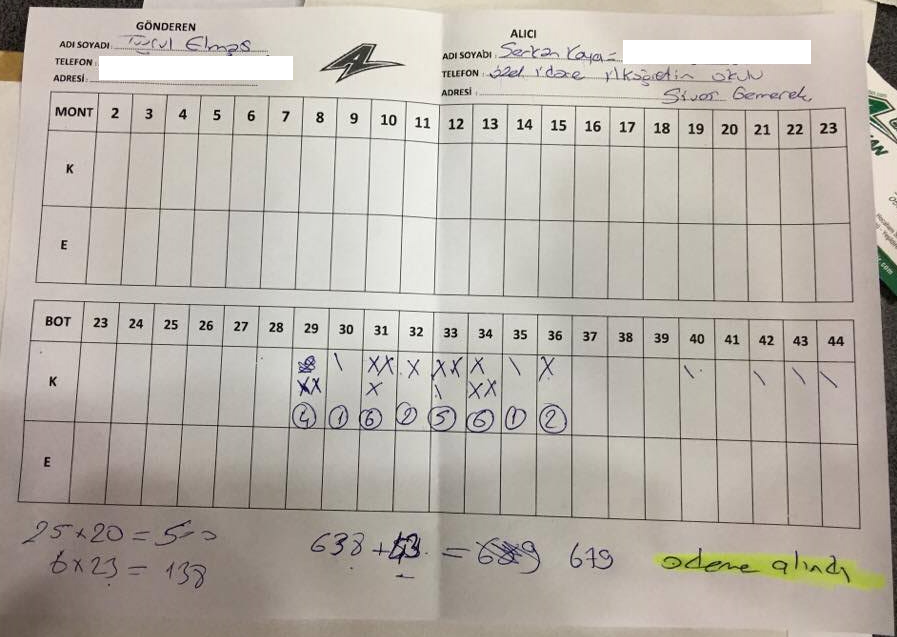 GÖNDEREN
ADI SOYADI : Tuğrul Elmas
TELEFON :
ADRESİ :
ALICI
ADI SOYADI : Serkan Kaya =
TELEFON : özel idare ilköğretim okulu
ADRESİ : Sivas Gemerek
MONT 2 3 4 5 6 7 8 9 10 11 12 13 14 15 16 17 18 19 20 21 22 23
K
E
BOT 23 24 25 26 27 28 29 30 31 32 33 34 35 36 37 38 39 40 41 42 43 44
K \ XX X XX X \ X \ \ \ \
XX X \ XX
4 1 6 2 5 6 1 2
E
25 x 20 = 500
6 x 23 = 138
638 + = 679 ödeme alındı